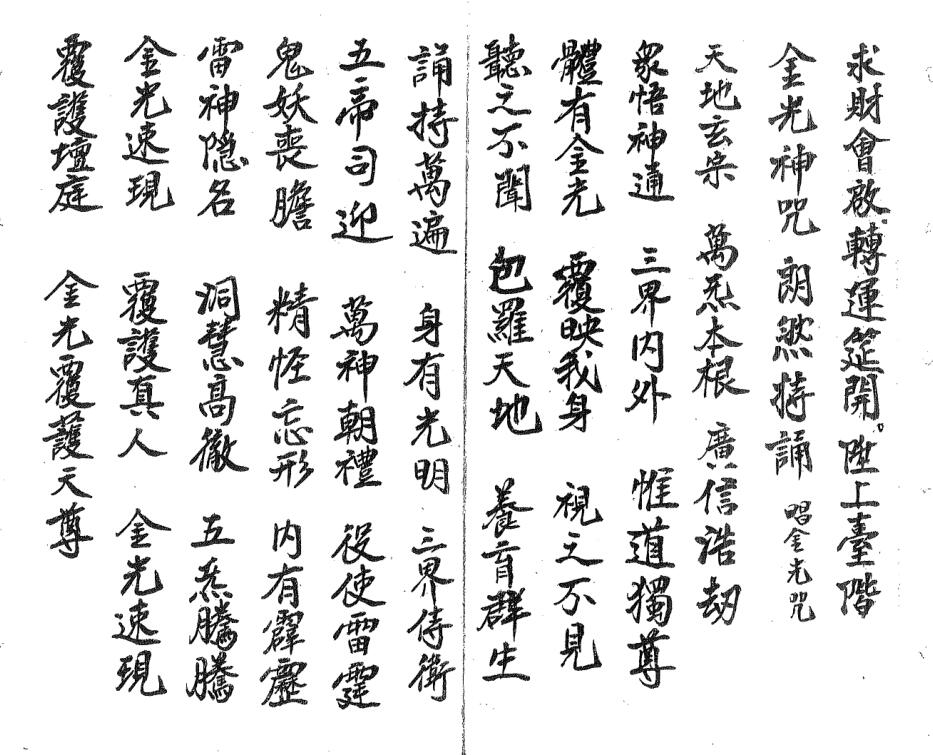 求財會啟。轉運筵開。陞上臺階
金光神咒 朗然持誦 唱金光咒
天地玄宗 萬炁本根 廣信浩劫
衆悟神通 三界内外 惟道獨尊
體有金光 覆映我身 視之不見
聽之不聞 包羅天地 養育群生
誦持萬遍 身有光明 三界侍衛
五帝司迎 萬神朝禮 役使雷霆
鬼妖喪膽 精怪忘形 内有霹靂
雷神隐名 洞慧高徹 五炁騰騰
金光速現 覆護真人 金光速現
覆護壇庭 金光覆護天尊